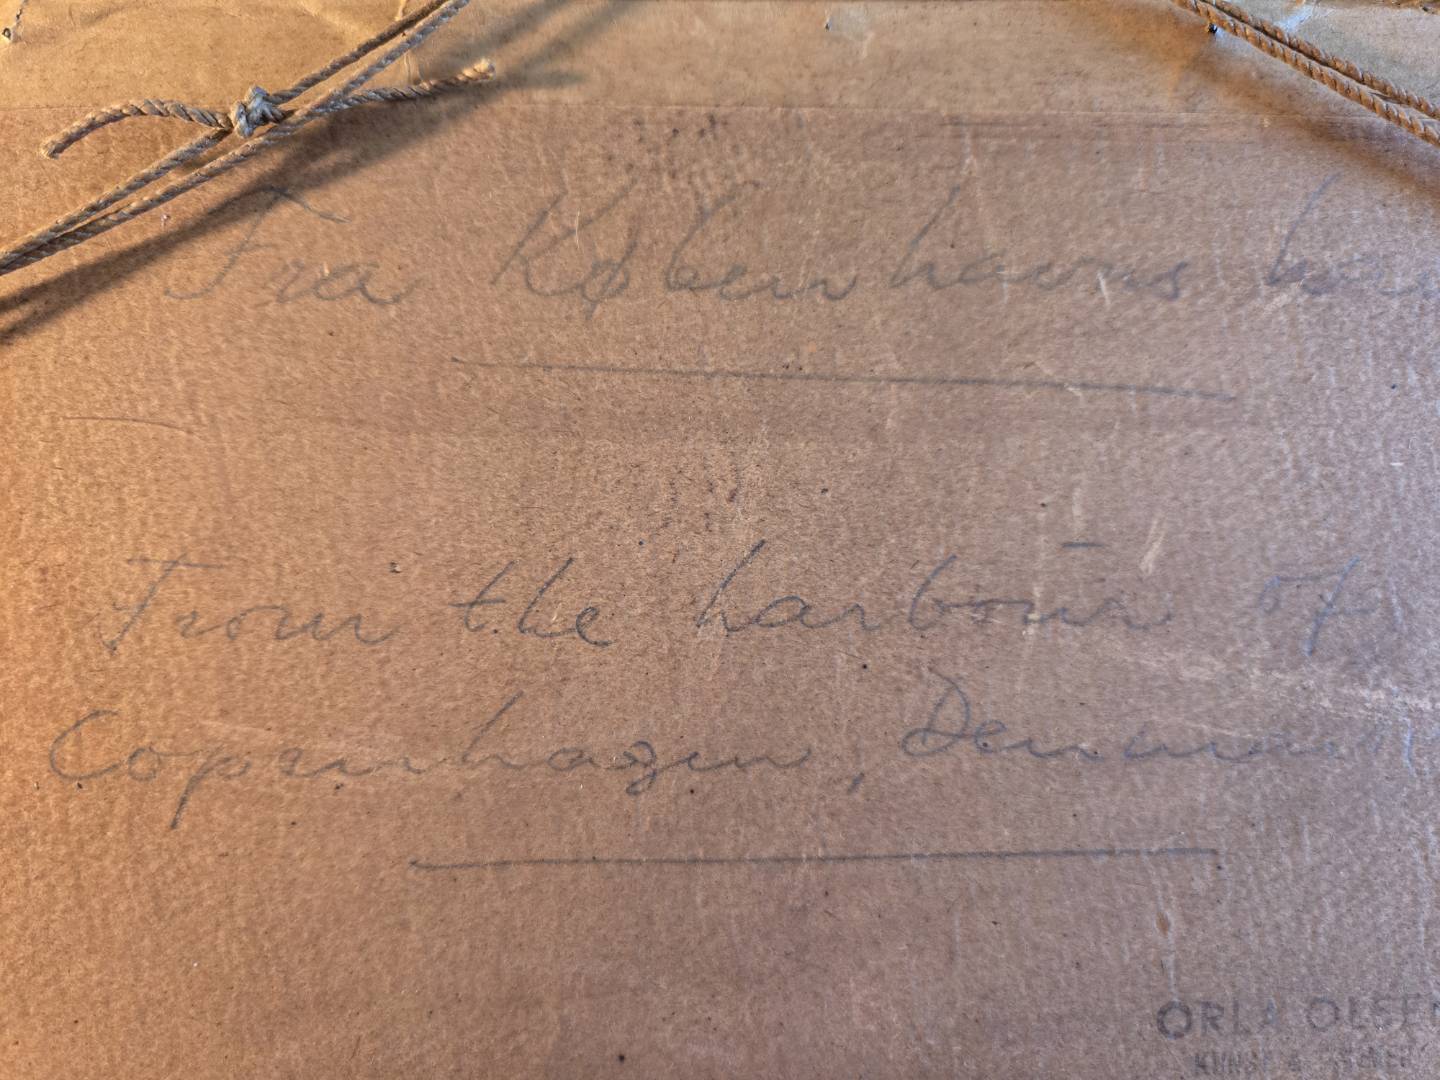 Fra Københavns
From the harbour of
Copenhagen, Denmark
ORLA OLSEN
KUNST &